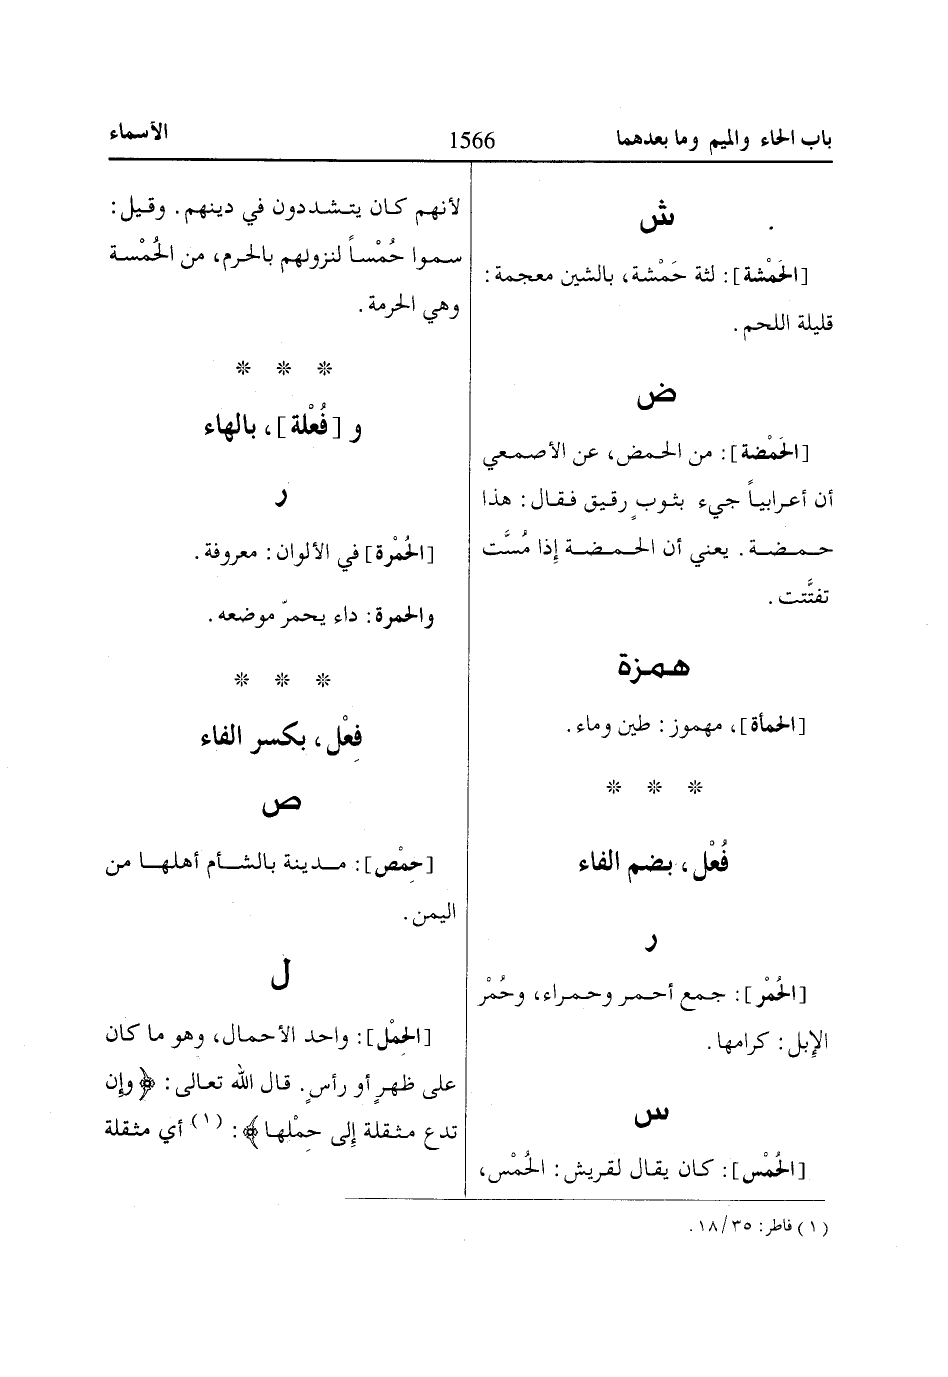 باب الحاء والميم وما بعدهما 1566 الأسماء
ش
[الحَمْشة]: لثة حَمْشة، بالشين معجمة:
قليلة اللحم.
ض
[الحَمْضة]: من الحمض، عن الأصمعي
أن أعرابياً جيء بثوبٍ رقيق فقال: هذا
حمضة. يعني أن الحمضة إذا مُسَّت
تفتَّتت.
همزة
[الحمأة]، مهموز: طين وماء.
* * *
فُعْل، بضم الفاء
ر
[الحُمْر]: جمع أحمر وحمراء، وحُمْر
الإبل: كرامها.
س
[الحُمْس]: كان يقال لقريش: الحُمْس،
لأنهم كان يتشددون في دينهم. وقيل:
سموا حُمْساً لنزولهم بالحرم، من الحُمْسة
وهي الحرمة.
* * *
و [فُعْلة]، بالهاء
ر
[الحُمْرة] في الألوان: معروفة.
والحمرة: داء يحمرّ موضعه.
* * *
فِعْل، بكسر الفاء
ص
[حِمْص]: مدينة بالشأم أهلها من
اليمن.
ل
[الحِمْل]: واحد الأحمال، وهو ما كان
على ظهرٍ أو رأسٍ. قال الله تعالى: ﴿وإن
تدع مثقلة إلى حِمْلها﴾: (١) أي مثقلة
(١) فاطر: ٣٥/١٨.